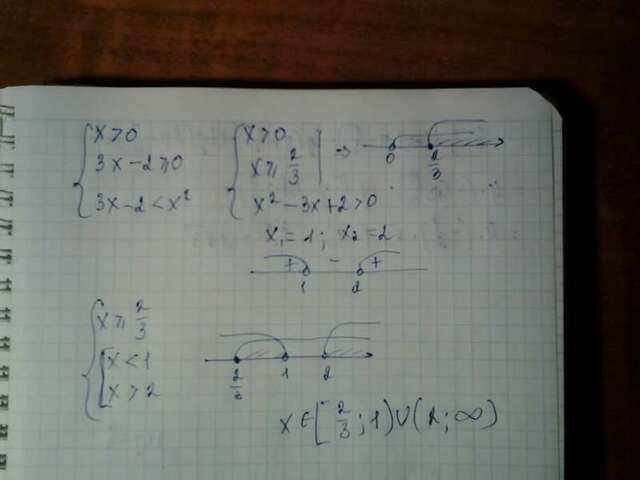 { x > 0
3x - 2 ⩾ 0
3x - 2 < x²
{ x > 0
x ⩾ 2/3 | ⇒
x² - 3x + 2 > 0
0 2/3
x₁ = 1; x₂ = 2
+ - +
1 2
{ x ⩾ 2/3
[ x < 1
x > 2
2/3 1 2
x ∈ [2/3; 1) ∪ (2; ∞)